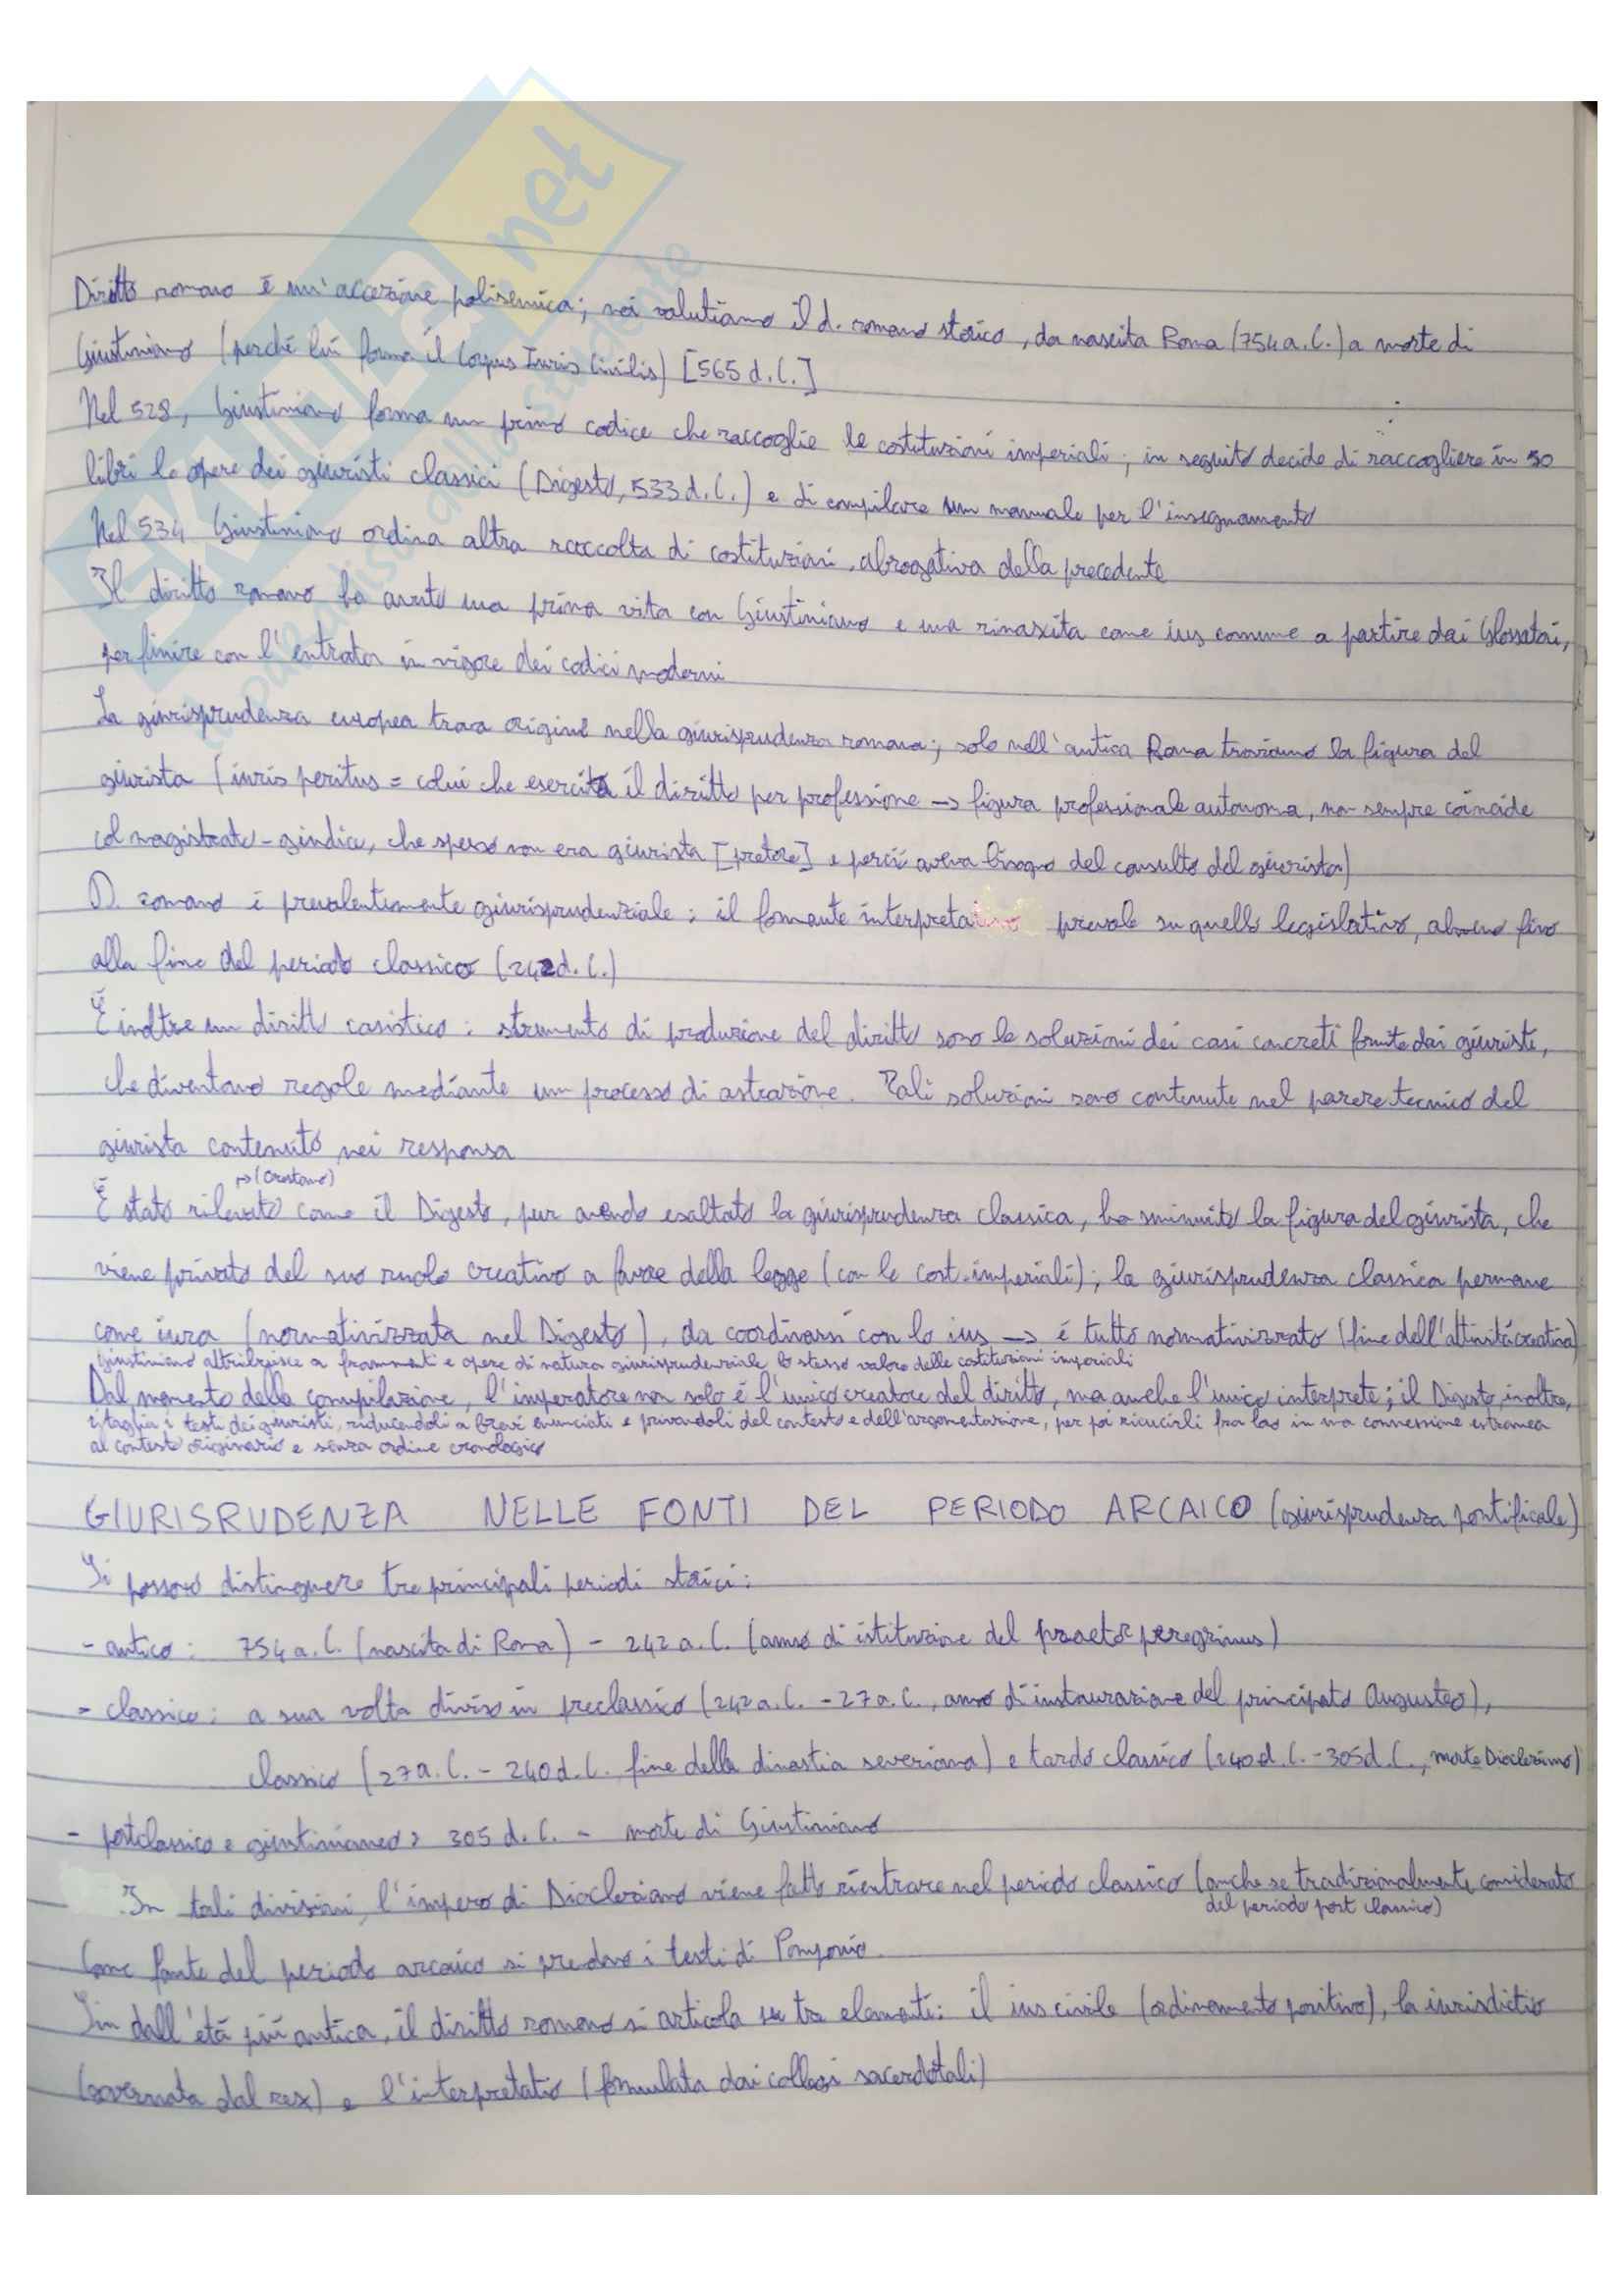 Diritto romano è un'accezione polisemica; noi valutiamo il d. romano storico, da nascita Roma (754 a.C.) a morte di
Giustiniano (perché lui forma il Corpus Iuris Civilis) [565 d.C.]
Nel 528, Giustiniano forma un primo codice che raccoglie le costituzioni imperiali; in seguito decide di raccogliere in 50
libri le opere dei giuristi classici (Digesto, 533 d.C.) e di compilare un manuale per l'insegnamento
Nel 534 Giustiniano ordina altra raccolta di costituzioni, abrogativa della precedente
Il diritto romano ha avuto una prima vita con Giustiniano e una rinascita come ius comune a partire dai Glossatori,
per finire con l'entrata in vigore dei codici moderni
La giurisprudenza europea trova origine nella giurisprudenza romana; solo nell'antica Roma troviamo la figura del
giurista (iuris peritus = colui che esercita il diritto per professione -> figura professionale autonoma, non sempre coincide
col magistrato-giudice, che spesso non era giurista [pretore] e perciò aveva bisogno del consulto del giurista)
D. romano è prevalentemente giurisprudenziale; il formante interpretativo prevale su quello legislativo, almeno fino
alla fine del periodo classico (242 d.C.)
È inoltre un diritto casistico: strumento di produzione del diritto sono le soluzioni dei casi concreti fornite dai giuristi,
che diventano regole mediante un processo di astrazione. Tali soluzioni sono contenute nel parere tecnico del
giurista contenuto nei responsa
-> (Orestano)
È stato rilevato come il Digesto, pur avendo esaltato la giurisprudenza classica, ha sminuito la figura del giurista, che
viene privato del suo ruolo creativo a favore della legge (con le cost. imperiali); la giurisprudenza classica permane
come iura (normativizzata nel Digesto), da coordinarsi con lo ius -> è tutto normativizzato (fine dell'attività creativa)
Giustiniano attribuisce a frammenti e opere di natura giurisprudenziale lo stesso valore delle costituzioni imperiali
Dal momento della compilazione, l'imperatore non solo è l'unico creatore del diritto, ma anche l'unico interprete; il Digesto, inoltre,
ritaglia i testi dei giuristi, riducendoli a brevi enunciati e privandoli del contesto e dell'argomentazione, per poi ricucirli fra loro in una connessione estranea
al contesto originario e senza ordine cronologico
GIURISRUDENZA NELLE FONTI DEL PERIODO ARCAICO (giurisprudenza pontificale)
Si possono distinguere tre principali periodi storici:
- antico: 754 a.C. (nascita di Roma) - 242 a.C. (anno di istituzione del praetor peregrinus)
- classico: a sua volta diviso in preclassico (242 a.C. - 27 a.C., anno di instaurazione del principato Augusteo),
classico (27 a.C. - 240 d.C. fine della dinastia severiana) e tardo classico (240 d.C. - 305 d.C., morte Diocleziano)
- postclassico e giustinianeo: 305 d.C. - morte di Giustiniano
In tali divisioni, l'impero di Diocleziano viene fatto rientrare nel periodo classico (anche se tradizionalmente considerato
del periodo post classico)
Come fonte del periodo arcaico si predono i testi di Pomponio.
Sin dall'età più antica, il diritto romano si articola su tre elementi: il ius civile (ordinamento positivo), la iurisdictio
(governata dal rex) e l'interpretatio (formulata dai collegi sacerdotali)
net